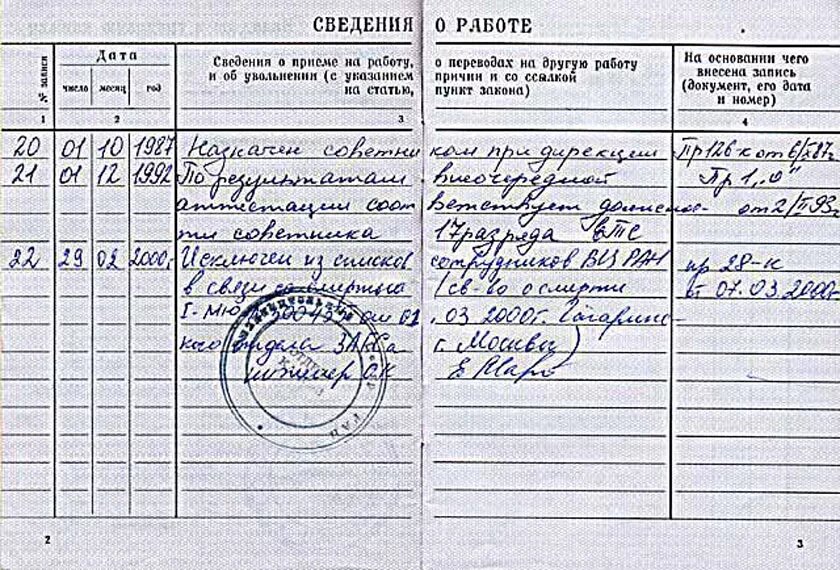 СВЕДЕНИЯ О РАБОТЕ
№ записи
Дата
число месяц год
Сведения о приеме на работу, о переводах на другую работу
и об увольнении (с указанием причин и со ссылкой
на статью, пункт закона)
На основании чего
внесена запись
(документ, его дата
и номер)
1 2 3 4
20 01 10 1987 Назначен советником при дирекции Пр 126 к от 6/X 87г.
21 01 12 1992 По результатам внеочередной Пр 1
аттестации соответствует должнос- от 2/II 93г.
ти советника 17 разряда ЕТС
22 29 02 2000г. Исключен из списков сотрудников РАН пр 28-к
в связи со смертью (св-во о смерти от 07.03.2000г.
I-МЮ от 01.03.2000г. Гагаринс-
кого отдела ЗАГСа г. Москвы)
инженер О.К.
2
3